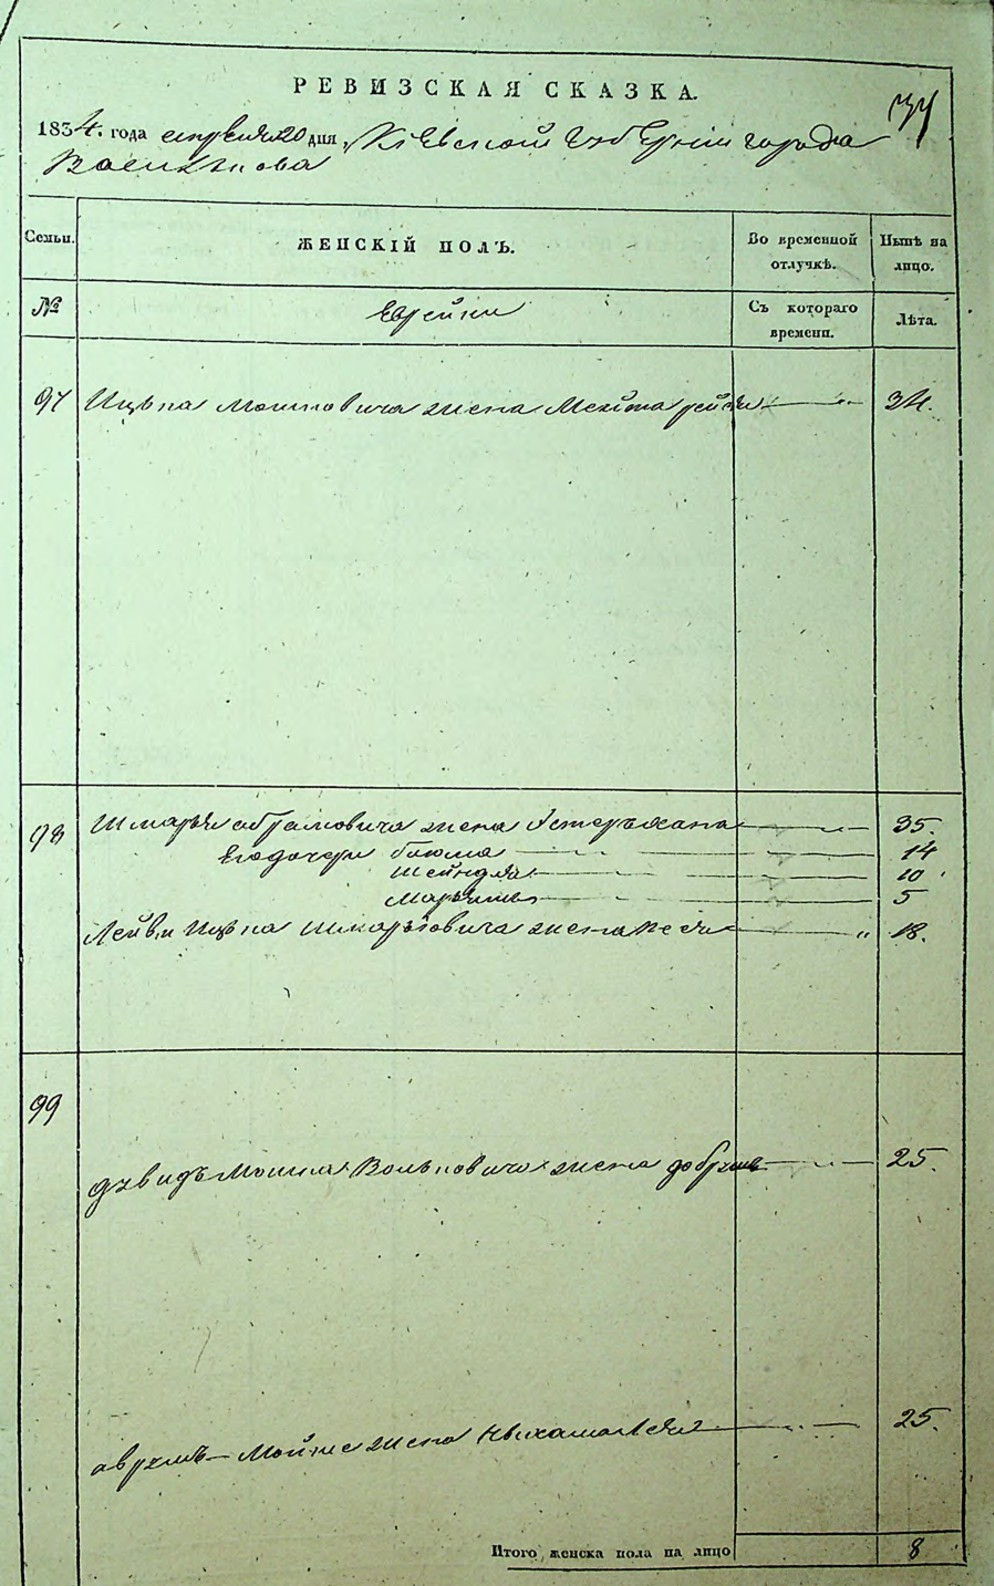 РЕВИЗСКАЯ СКАЗКА.
1834. года апреля 20 дня, Кіевской губерніи города
Василькова
Семьи. ЖЕНСКІЙ ПОЛЪ. Во временной отлучкѣ. Нынѣ на лицо.
№ Еврейки Съ котораго времени. Лѣта.
97 Ицька Мошковича жена 34.
98 Шмарья абрамовича жена Эстеръ хана 35.
его дочери 14
Шейндля 10
Марьямъ 5
Лейви Ицька Шмарьовича жена Песя 18.
99
Давидъ Мошка Волькович жена добрышъ 25.
аврумъ Мойше жена 25.
Итого женска пола на лицо 8